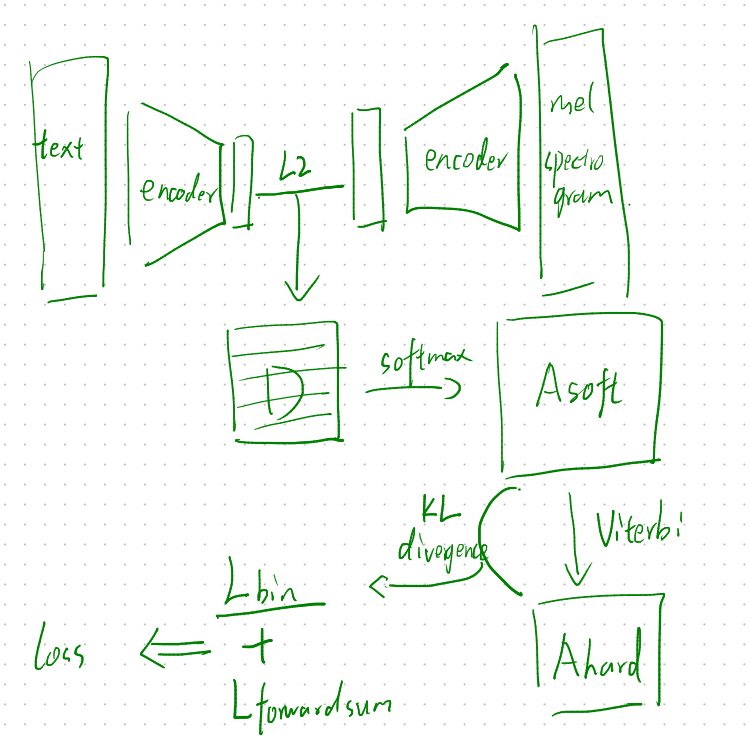 text
encoder
L2
encoder
mel
spectro
gram
D
softmax
Asoft
KL
divergence
Viterbi
Lbin
+
Lforwardsum
Loss
Ahard